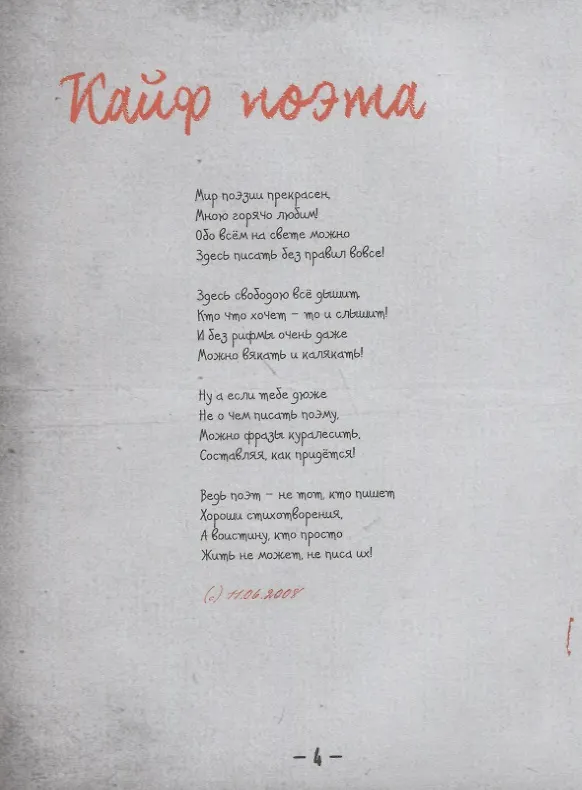 Кайф поэта
Мир поэзии прекрасен,
Мною горячо любим!
Обо всём на свете можно
Здесь писать без правил вовсе!
Здесь свободою всё дышит.
Кто что хочет – то и слышит!
И без рифмы очень даже
Можно вякать и калякать!
Ну а если тебе дюже
Не о чем писать поэму,
Можно фразы куралесить,
Составляя, как придётся!
Ведь поэт – не тот, кто пишет
Хороши стихотворения,
А воистину, кто просто
Жить не может, не писа их!
(с) 11.06.2008
– 4 –